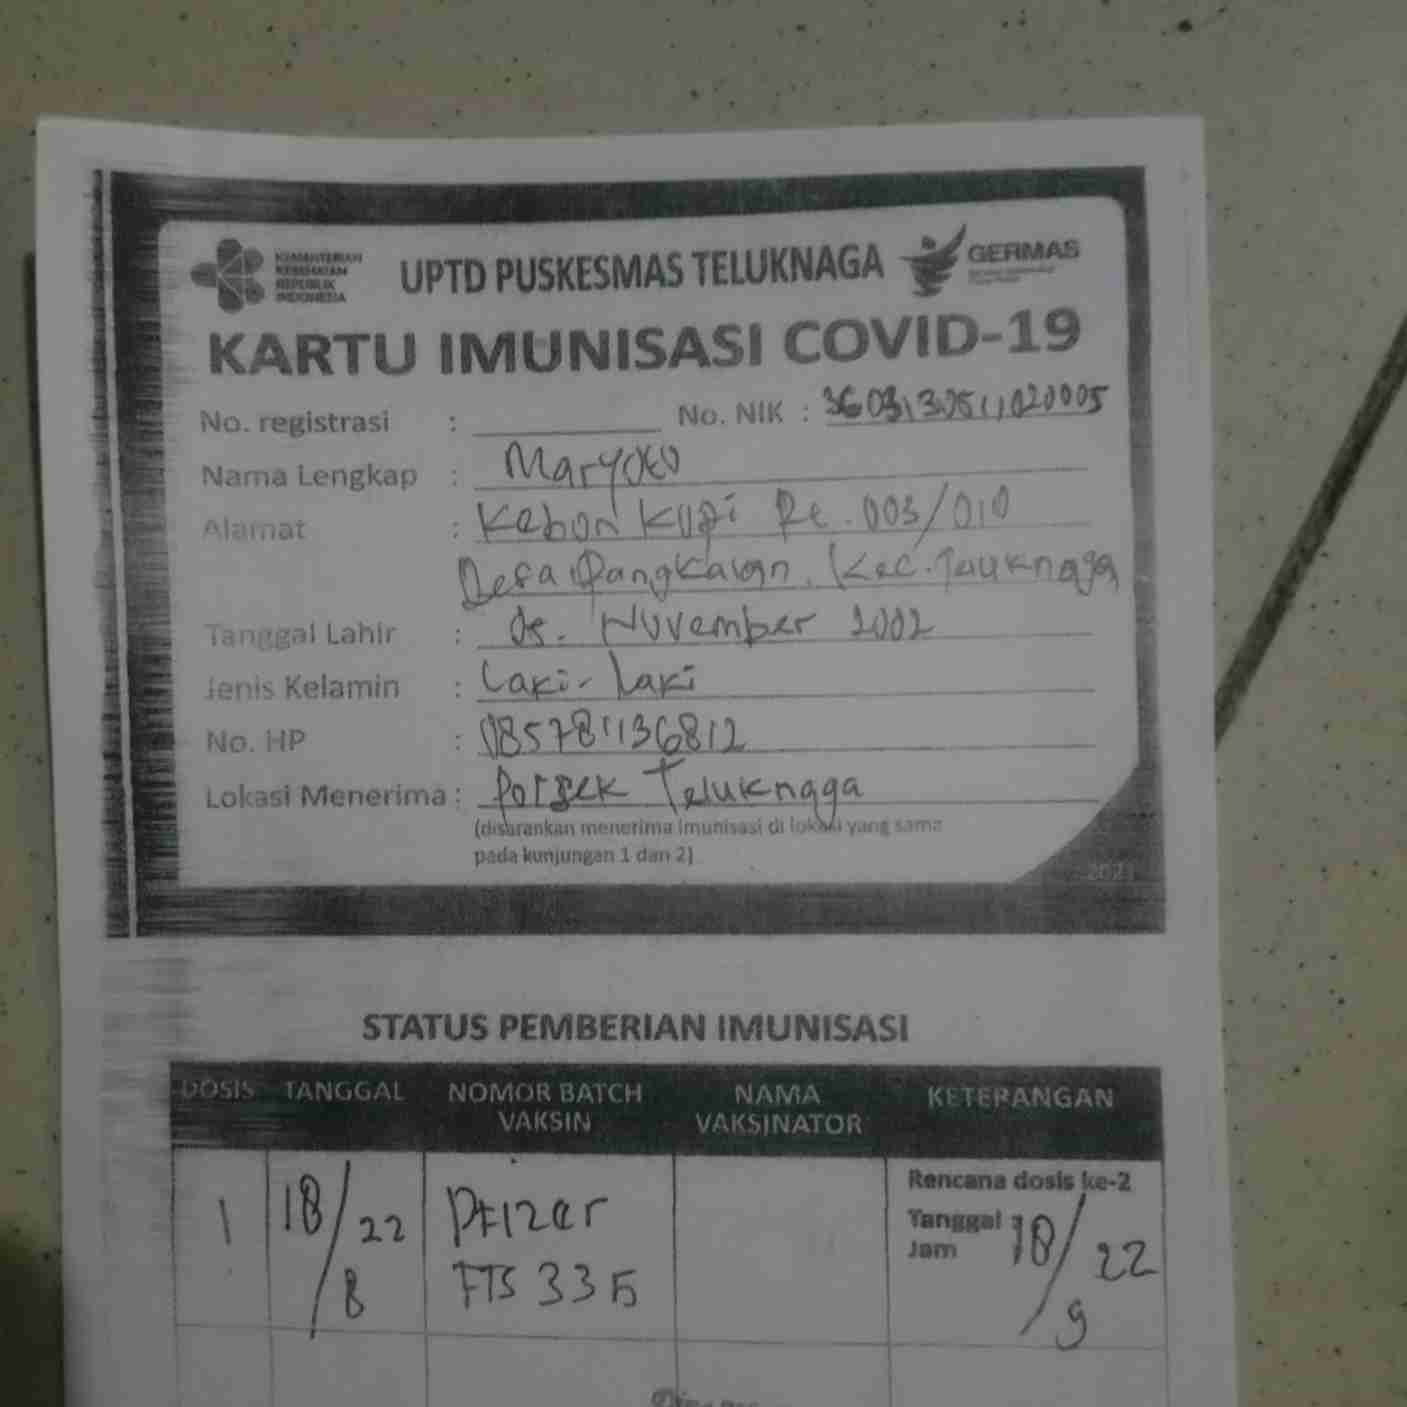 KEMENTERIAN
KESEHATAN
REPUBLIK
INDONESIA
UPTD PUSKESMAS TELUKNAGA
GERMAS
KARTU IMUNISASI COVID-19
No. registrasi : No. NIK :
Nama Lengkap : Maryoto
Alamat : Kebon Kopi Rt. 003/010
Desa Pangkalan. Kec. Teluknaga
Tanggal Lahir : 05. November 2002
Jenis Kelamin : Laki-laki
No. HP : 085781136812
Lokasi Menerima : Polsek Teluknaga
(disarankan menerima imunisasi di lokasi yang sama
pada kunjungan 1 dan 2)
2021
STATUS PEMBERIAN IMUNISASI
DOSIS TANGGAL NOMOR BATCH VAKSIN NAMA VAKSINATOR KETERANGAN
1 18/8 22 Pfizer FTS 335 Rencana dosis ke-2
Tanggal 18/9 22
Jam